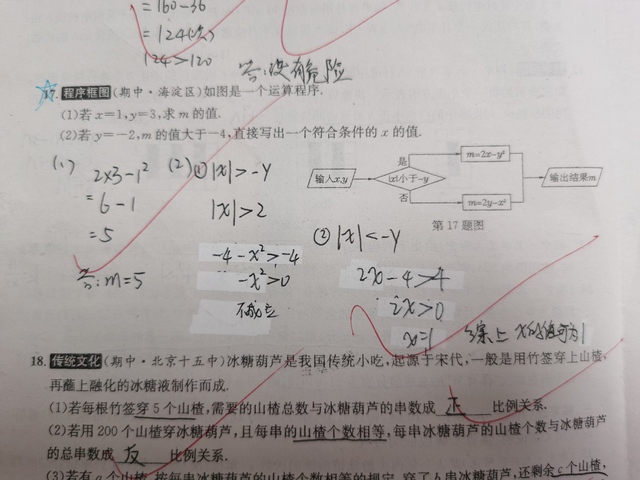 =160-36
=124(次)
124>120
答:没有危险
17.程序框图(期中·海淀区)如图是一个运算程序.
(1)若x=1,y=3,求m的值.
(2)若y=-2,m的值大于-4,直接写出一个符合条件的x的值.
(1)
2×3-1²
=6-1
=5
答:m=5
(2)①|x|>-y
|x|>2
-4-x²>-4
-x²>0
不成立
输入x,y
|x|小于-y
是
否
m=2x-y²
m=2y-x²
输出结果m
第17题图
②|x|<-y
2x-4>-4
2x>0
x=1
综上x的值可为1
18.传统文化(期中·北京十五中)冰糖葫芦是我国传统小吃,起源于宋代,一般是用竹签穿上山楂,
再蘸上融化的冰糖液制作而成.
(1)若每根竹签穿5个山楂,需要的山楂总数与冰糖葫芦的串数成 正 比例关系.
(2)若用200个山楂穿冰糖葫芦,且每串的山楂个数相等,每串冰糖葫芦的山楂个数与冰糖葫芦
的总串数成 反 比例关系.
(3)若有a个山楂,按每串冰糖葫芦的山楂个数相等的规定,穿了b串冰糖葫芦,还剩余c个山楂,